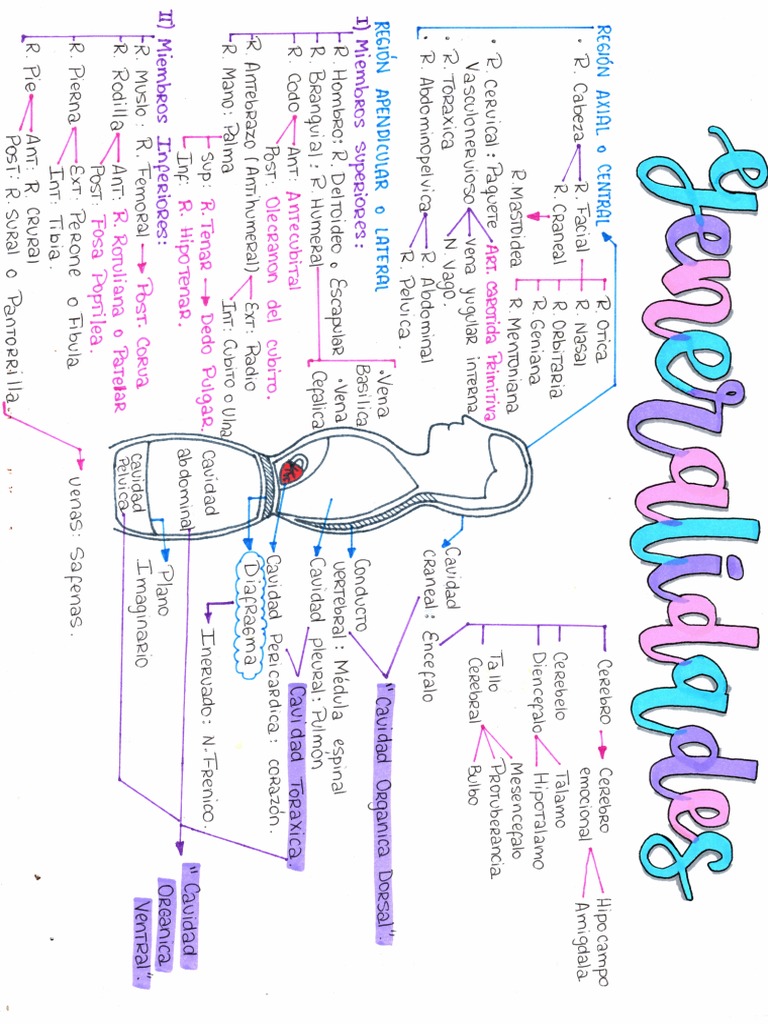 Generalidades
REGIÓN AXIAL O CENTRAL
• R. Cabeza
R. Facial
R. Otica
R. Nasal
R. Orbitaria
R. Geniana
R. Mentoniana
R. Craneal
R. Mastoidea
• R. Cervical: Paquete
Vasculonervioso
ART. CAROTIDA PRIMITIVA
Vena yugular interna
N. Vago.
• R. TORAXICA
• R. Abdominopelvica
R. Abdominal
R. Pelvica.
REGIÓN APENDICULAR O LATERAL
I) Miembros Superiores:
R. Hombro: R. Deltoideo o Escapular
R. Branquial: R Humeral
• Vena Basilica
• Vena Cefalica
R. Codo
Ant: Antecubital
Post: Olecranon del cubito.
R. Antebrazo (Antihumeral)
Ext: Radio
Int: Cubito o Ulna
R. Mano: Palma
Sup: R. Tenar → Dedo Pulgar.
Inf: R. Hipotenar.
II) Miembros Inferiores:
R. Muslo: R. Femoral → Post. Corva
R. Rodilla
Ant: R. Rotuliana o Patelar
Post: Fosa Poptilea.
R. Pierna
Ext: Perone o Fibula
Int: Tibia.
R. Pie
Ant: R. Crural
Post: R. Sural o Pantorrilla.
Venas: Safenas.
Cavidad
craneal: Encefalo
Cerebro → Cerebro
emocional
Hipocampo
Amigdala
Cerebelo
Diencefalo
Talamo
Hipotalamo
Tallo
Cerebral
Mesencefalo
Protuberancia
Bulbo
Conducto
vertebral: Médula espinal
"Cavidad Organica Dorsal".
Cavidad pleural: Pulmón
Cavidad Pericardica: corazón.
Cavidad Toraxica.
Diafragma
Inervado: N. Frenico.
cavidad
abdominal
cavidad
Pelvica
Plano
Imaginario
"Cavidad
ORGANICA
VENTRAL"